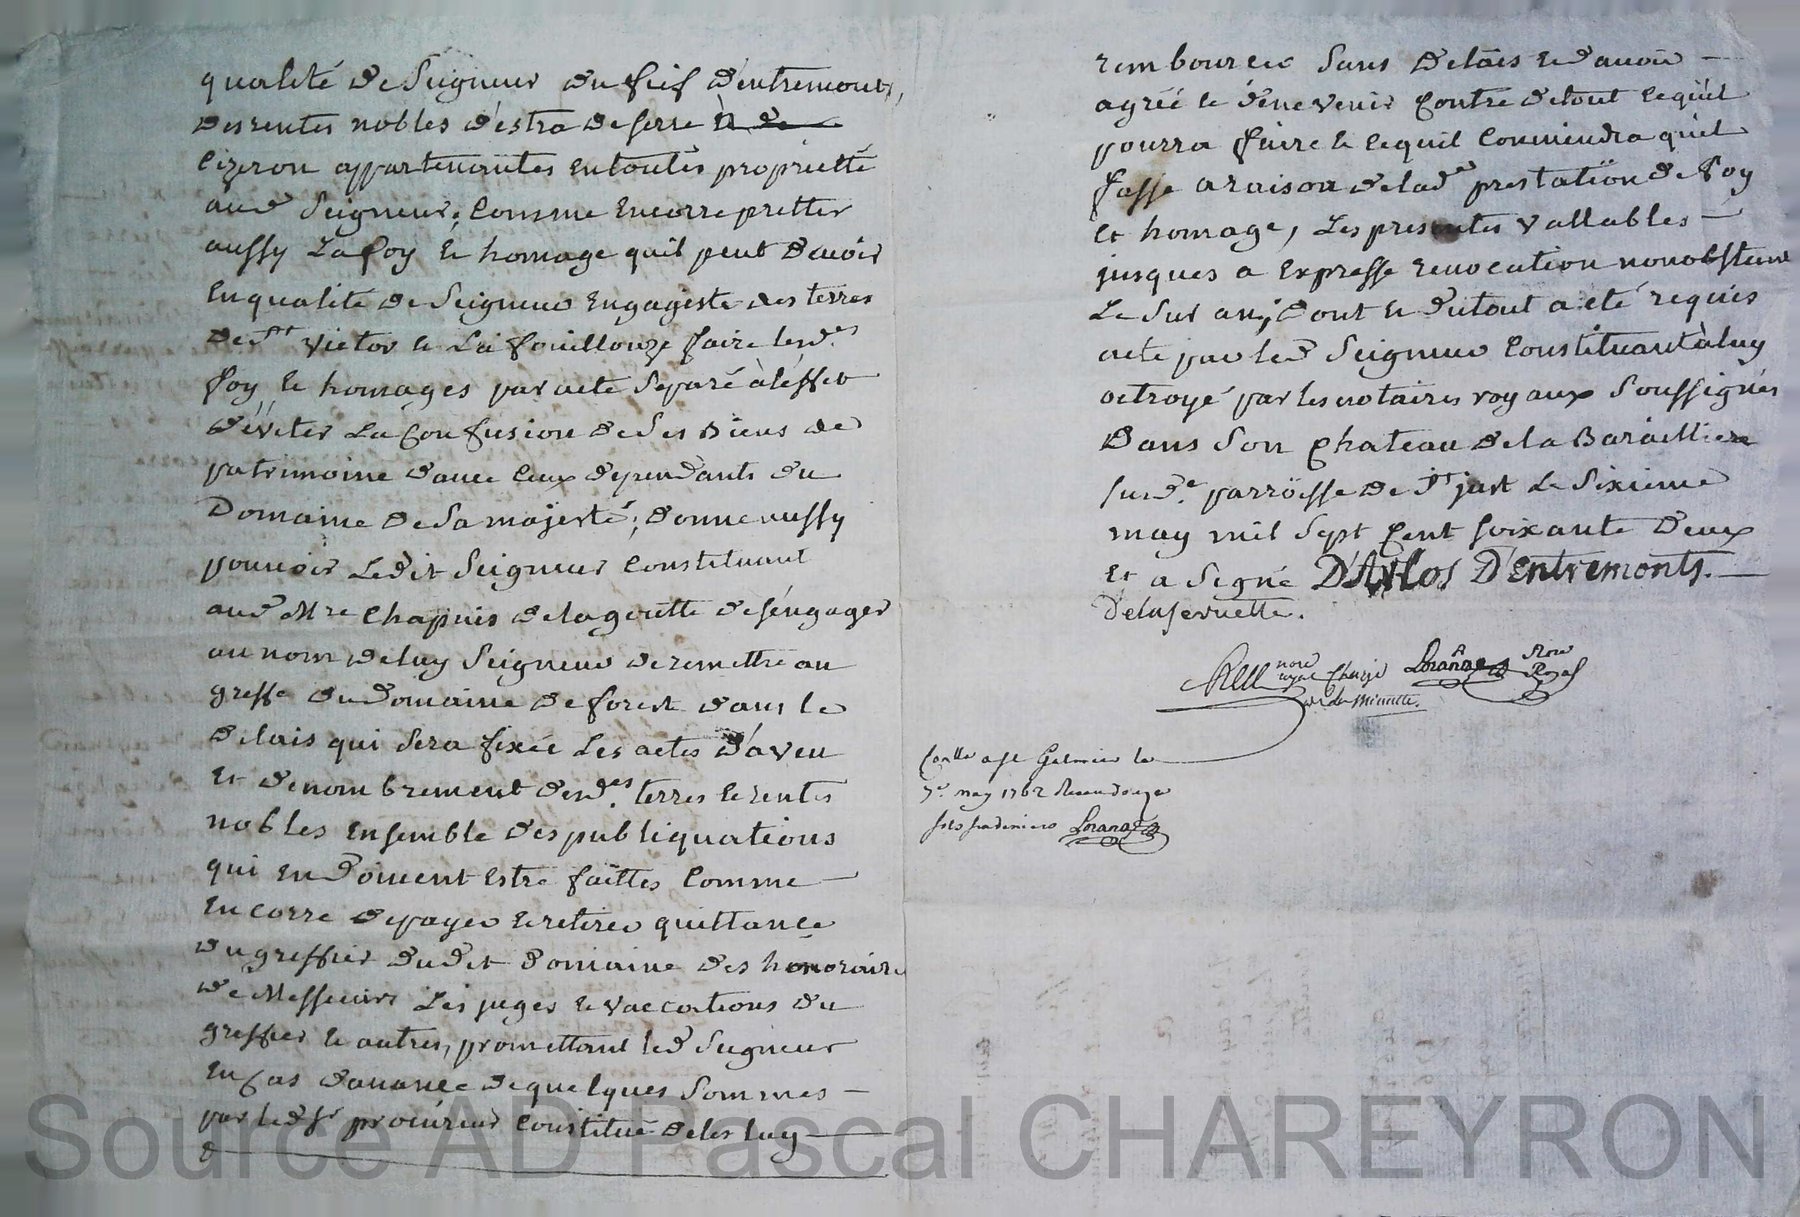 qualité de Seigneur du fief d'entremonts,
des rentes nobles d'estra de serre
Cizeron appartenantes en toutes proprietté
aud Seigneur; Comme Encorre pretter
aussy La foy & homage quil peut Devoir
En qualité de Seigneur Engagiste des terres
De St Victor & La fouillouze faire lesd.es
foy & homages par acte Separé à l'effet
d'éviter La Confusion de ses Biens de
patrimoine d'avec Ceux dependants du
Domaine de Sa majesté; donne aussy
pouvoir Ledit Seigneur Constituant
aud Mre Chapuis de la goutte de s'engager
au nom de luy Seigneur de remettre au
greffe du domaine de forest dans le
delais qui sera fixée Les actes d'aveu
Et denombrement desd.es terres & rentes
nobles Ensemble des publiquations
qui En doivent Estre faittes Comme
Encorre de payer & retirer quittance
du greffier dudit domaine des honoraire
de Messieurs Les juges & vaccations du
greffier & autres, promettant led Seigneur
En Cas d'avance de quelques Sommes
par led Sr procureur Constitué de les luy
rembourcer Sans Delais & d'avoir
agréé & de ne venir Contre de tout ce qu'il
pourra faire & ce quil Conviendra quil
fasse a raison de lad.e prestation de foy
et homage, Les presentes Vallables
jusques a Expresse revocation nonobstant
Le Sur an; Dont & du tout a eté requis
acte par led Seigneur Constituant à luy
octroyé par les notaires royaux Soussignés
Dans Son Chateau de la Baraillere
Susd.e parroisse de St just Le Sixieme
may mil Sept Cent Soixante deux
Et a Signé D'Arlos D'Entremonts.
De la servette.
nore royal Chargé
de la Minutte.
Loranna
Nore
Royal
Conlle a St Galmier le
7e may 1762 Receu douze
sols six deniers Loranna
Source AD Pascal CHAREYRON